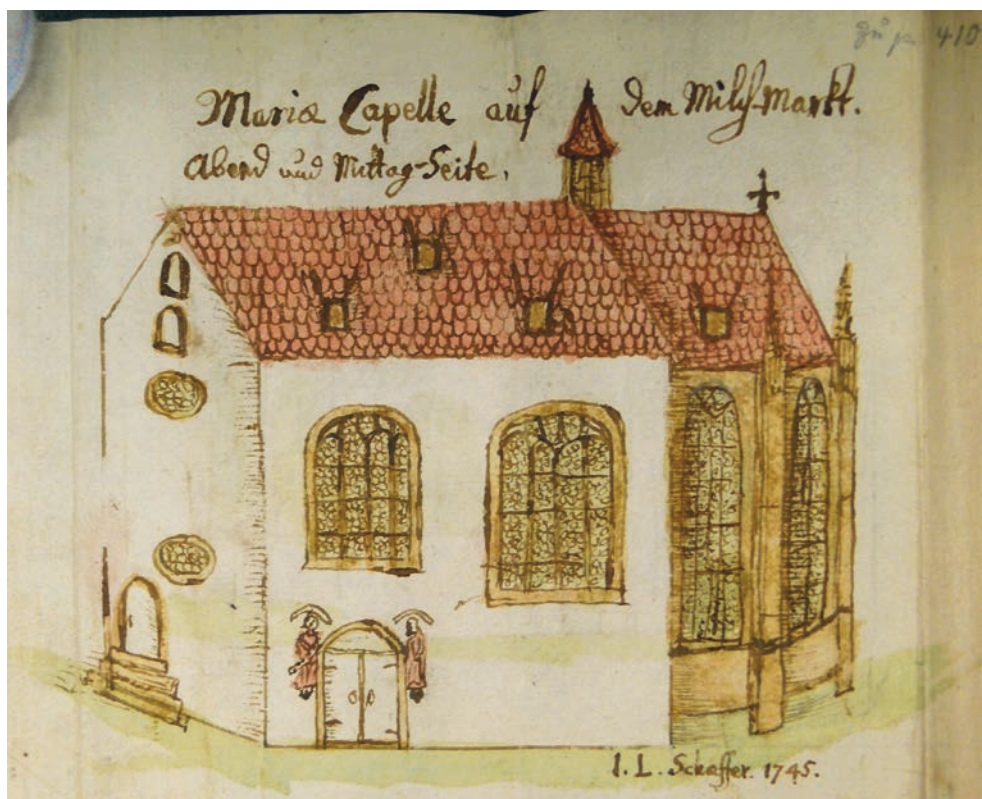 Zu p. 410
Mariæ Capelle auf dem Milch-Markt.
Abend und Mittag-Seite.
I. L. Schæffer. 1745.